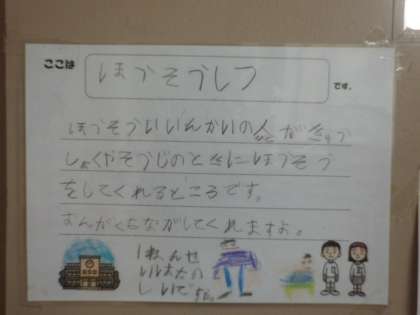 ここは
ほうそうしつ
です。
ほうそういいんかいの人が きゅう
しょくやそうじのときにほうそう
をしてくれるところです。
おんがくもながしてくれますよ。